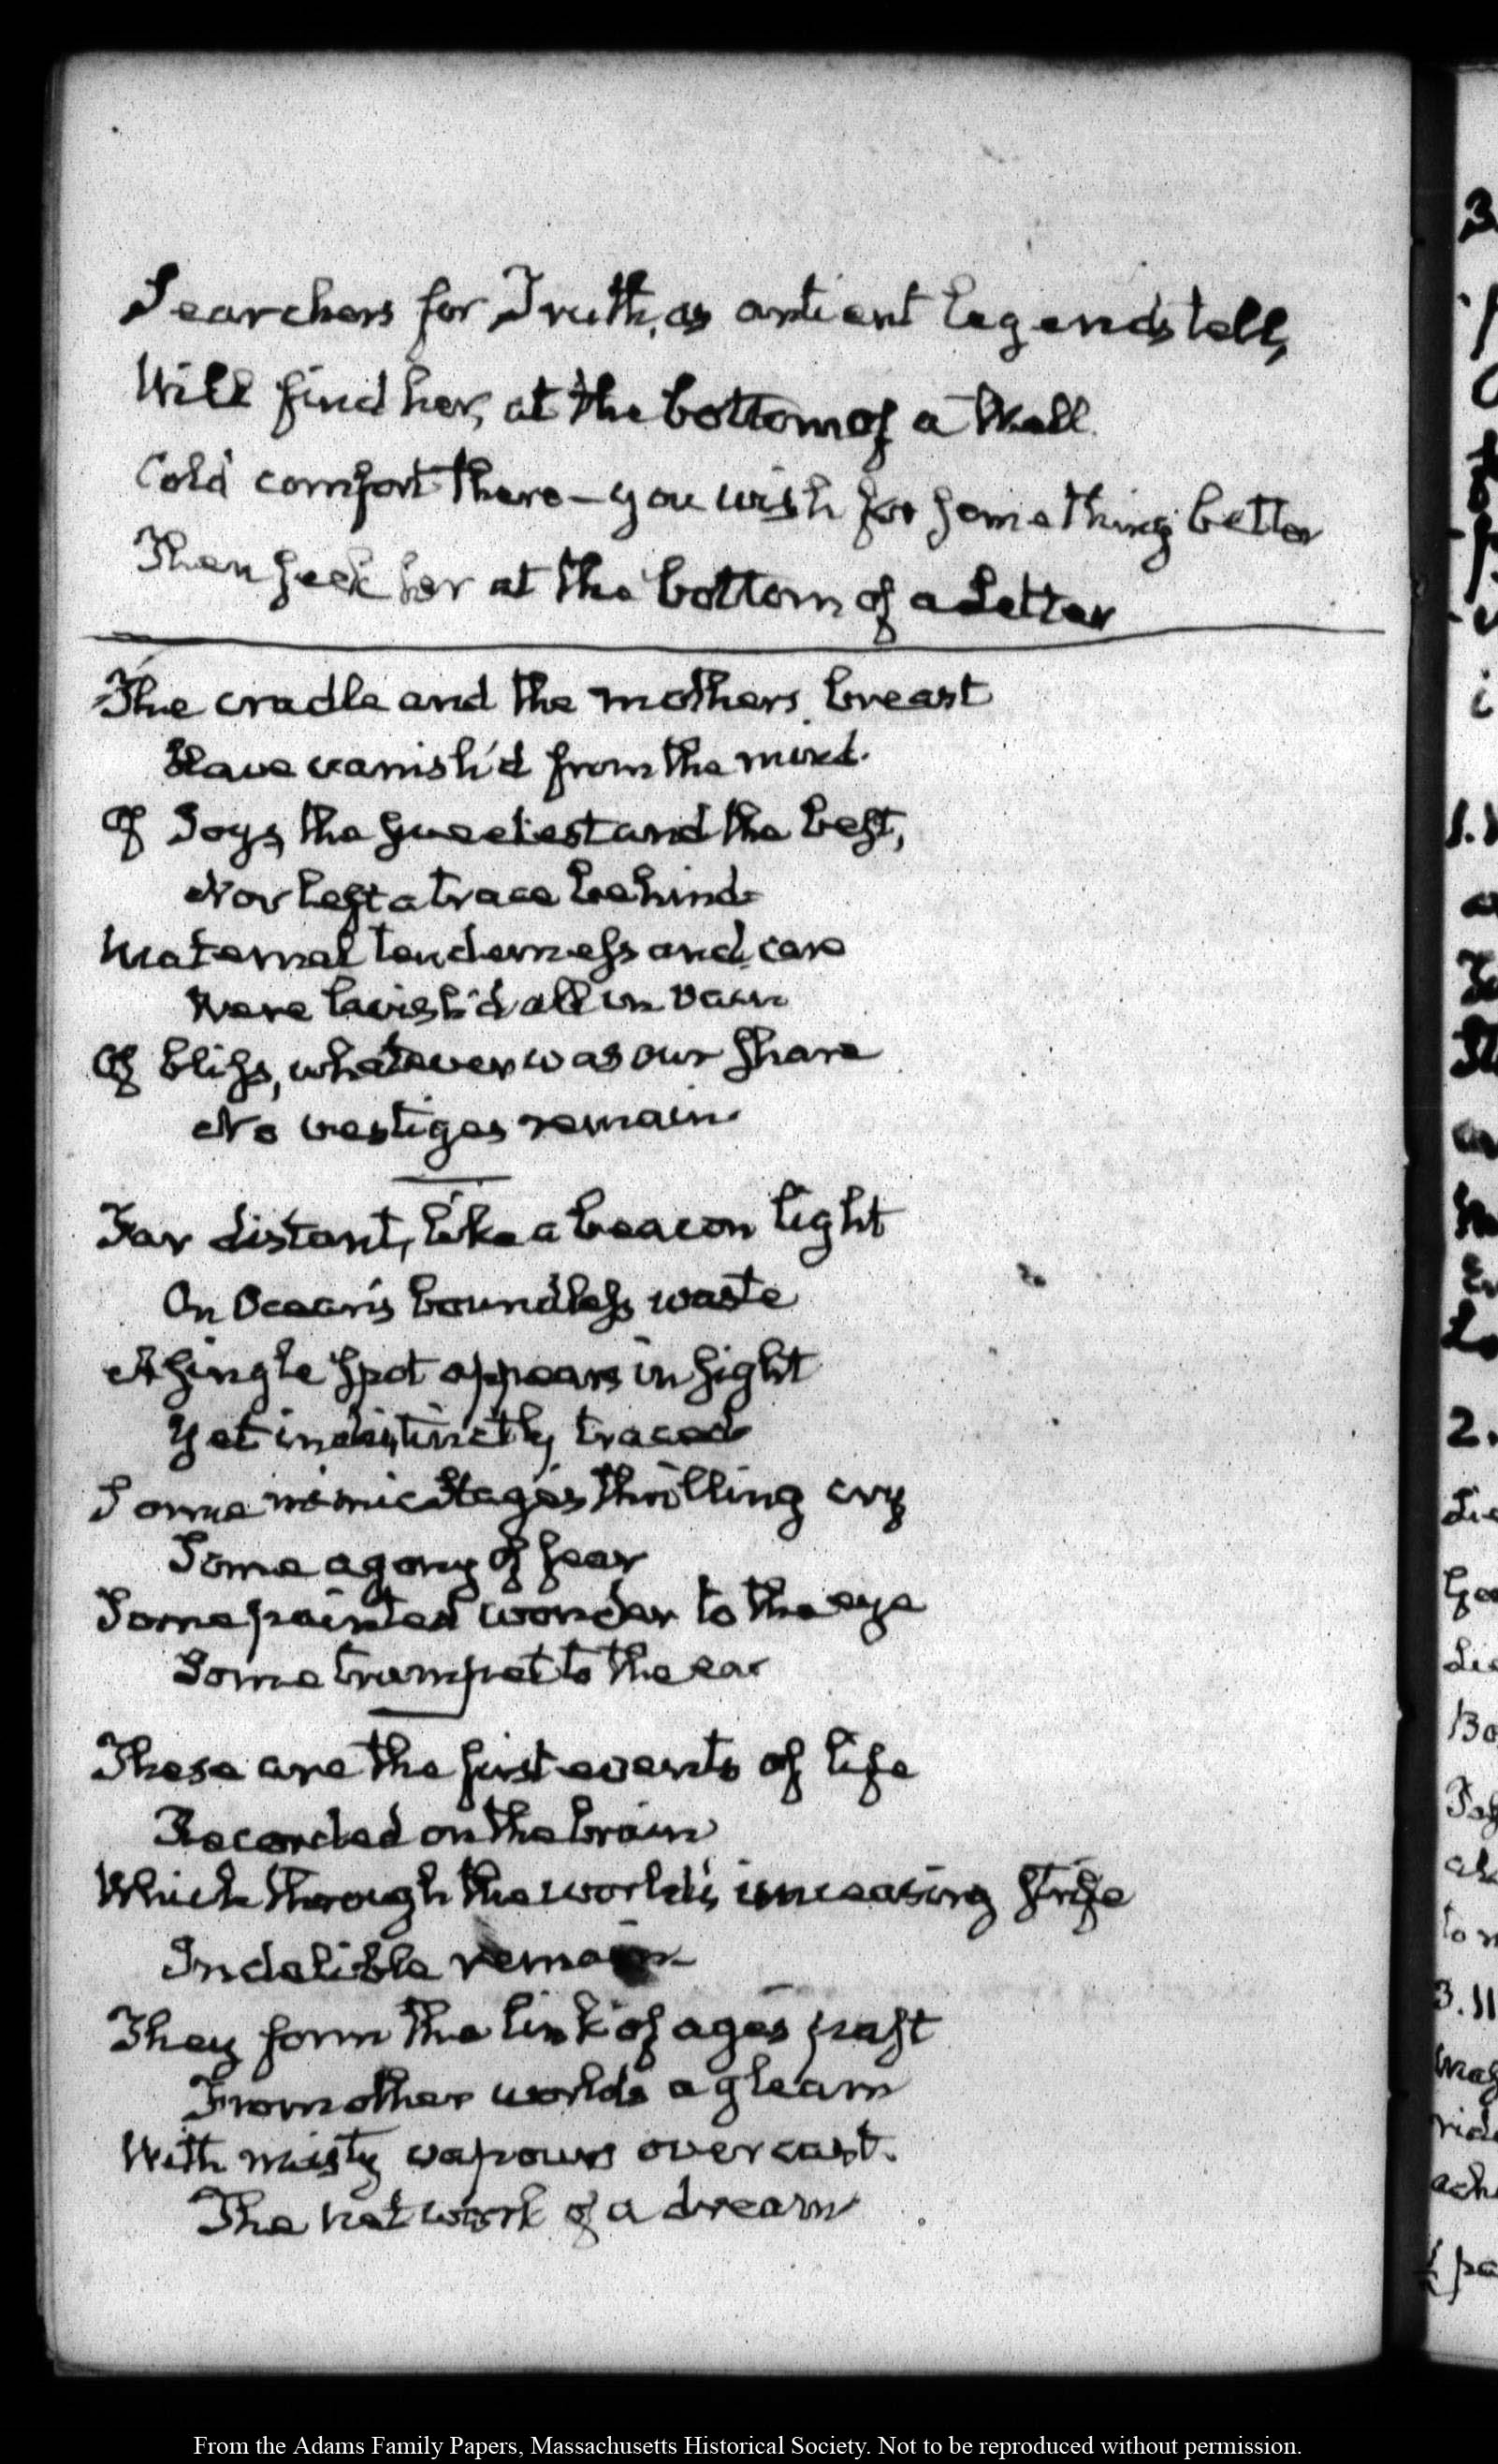 Searchers for Truth, as antient legends tell,
Will find her, at the bottom of a Well.
Cold comfort there — you wish for something better
Then seek her at the bottom of a Letter
The cradle and the mothers breast
Have vanish'd from the mind.
Of Joys, the sweetest and the best,
Nor left a trace behind
Maternal tenderness and care
Were lavish'd all in vain
Of bliss, whatever was our share
No vestiges remain.
Far distant, like a beacon light
On Ocean's boundless waste
A single spot appears in sight
Yet indistinctly traced
Some mimic Stage's thrilling cry
Some agony of fear
Some painted wonder to the eye
Some trumpet to the ear
These are the first events of life
Recorded on the brain
Which through the world's unceasing strife
Indelible remain
They form the link of ages past
From other worlds a gleam
With misty vapours overcast.
The net work of a dream
From the Adams Family Papers, Massachusetts Historical Society. Not to be reproduced without permission.